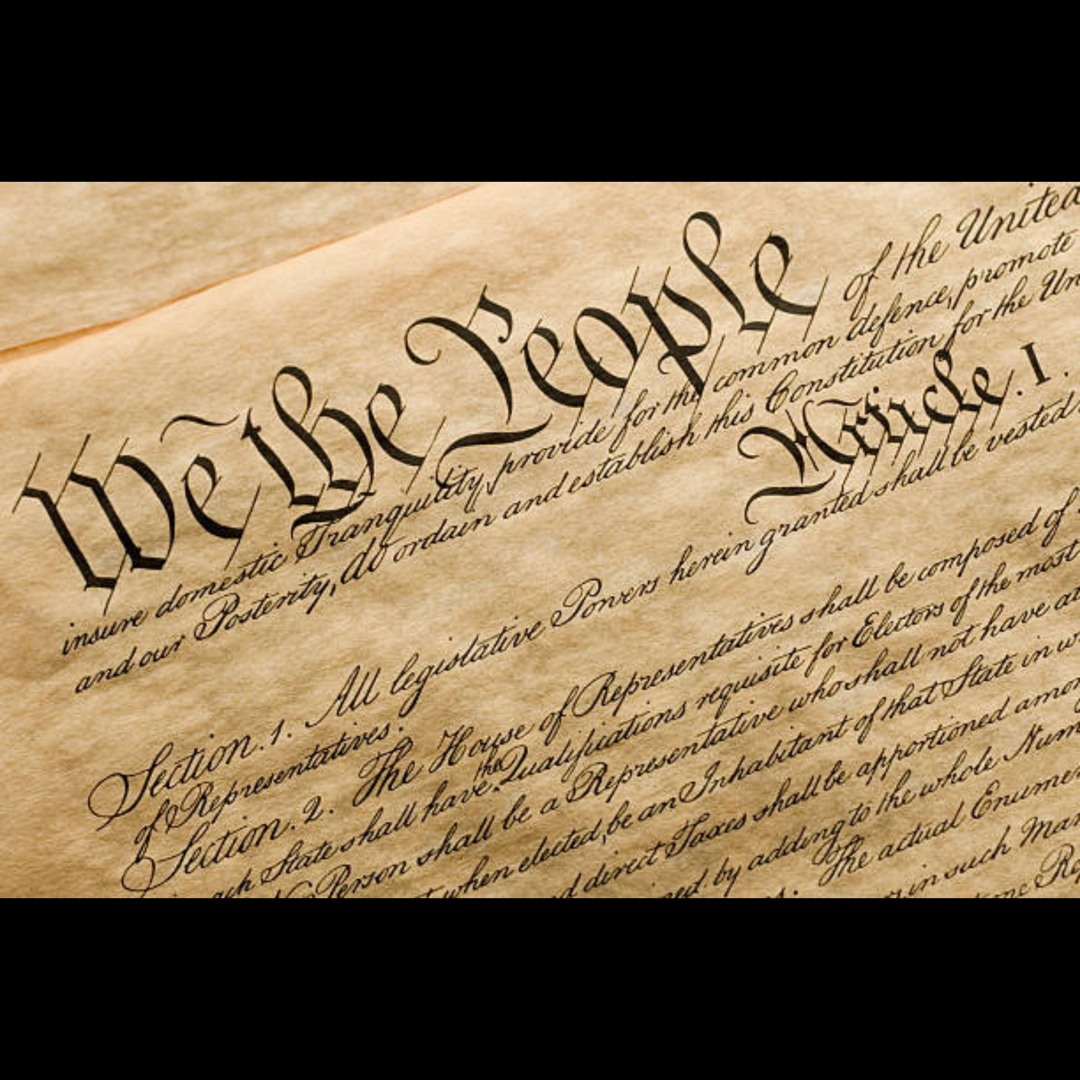 We the People of the United
insure domestic Tranquility, provide for the common defence, promote
and our Posterity, do ordain and establish this Constitution for the Un
Article. I.
Section. 1. All legislative Powers herein granted shall be vested
of Representatives.
Section. 2. The House of Representatives shall be composed of
ach State shall have the Qualifications requisite for Electors of the most
No Person shall be a Representative who shall not have at
t when elected, be an Inhabitant of that State in w
d direct Taxes shall be apportioned amon
ned by adding to the whole Num
s. The actual Enumer
in such Man
Re